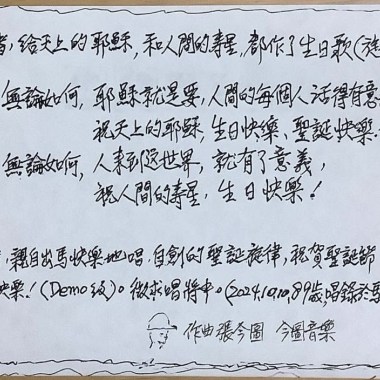 者,給天上的耶穌,和人間的壽星,都作了生日歌(旋
無論如何,耶穌就是要,人間的每個人活得有意
祝天上的耶穌,生日快樂、聖誕快樂.
無論如何,人來到這世界,就有了意義,
祝人間的壽星,生日快樂!
,親自出馬快樂地唱,自創的聖誕旋律,祝賀聖誕節
快樂!(Demo級)。徵求唱將中。(2024.10.10,89歲,唱錄於
作曲張今圖 今圖音樂